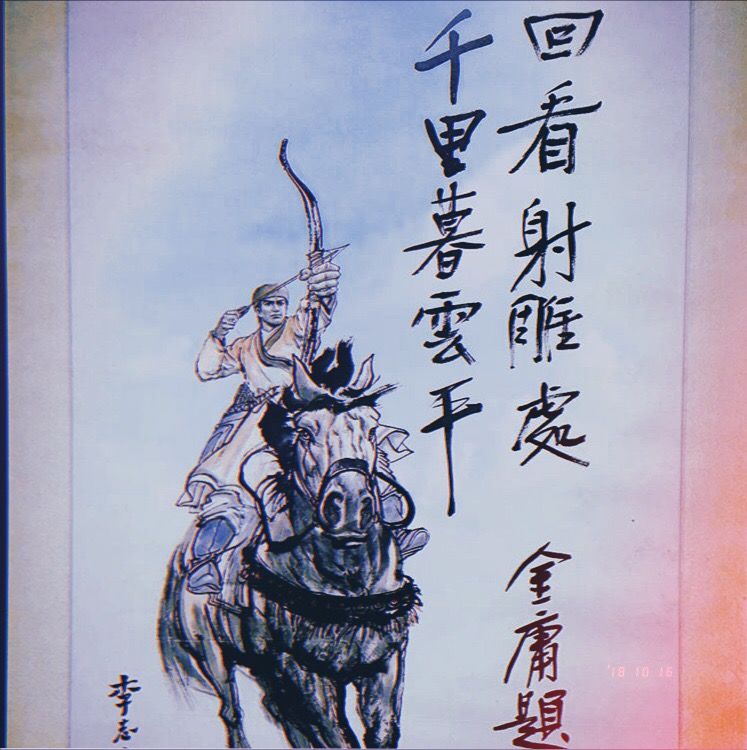 回看射雕處
千里暮雲平
金庸題
李志
'18 10 16